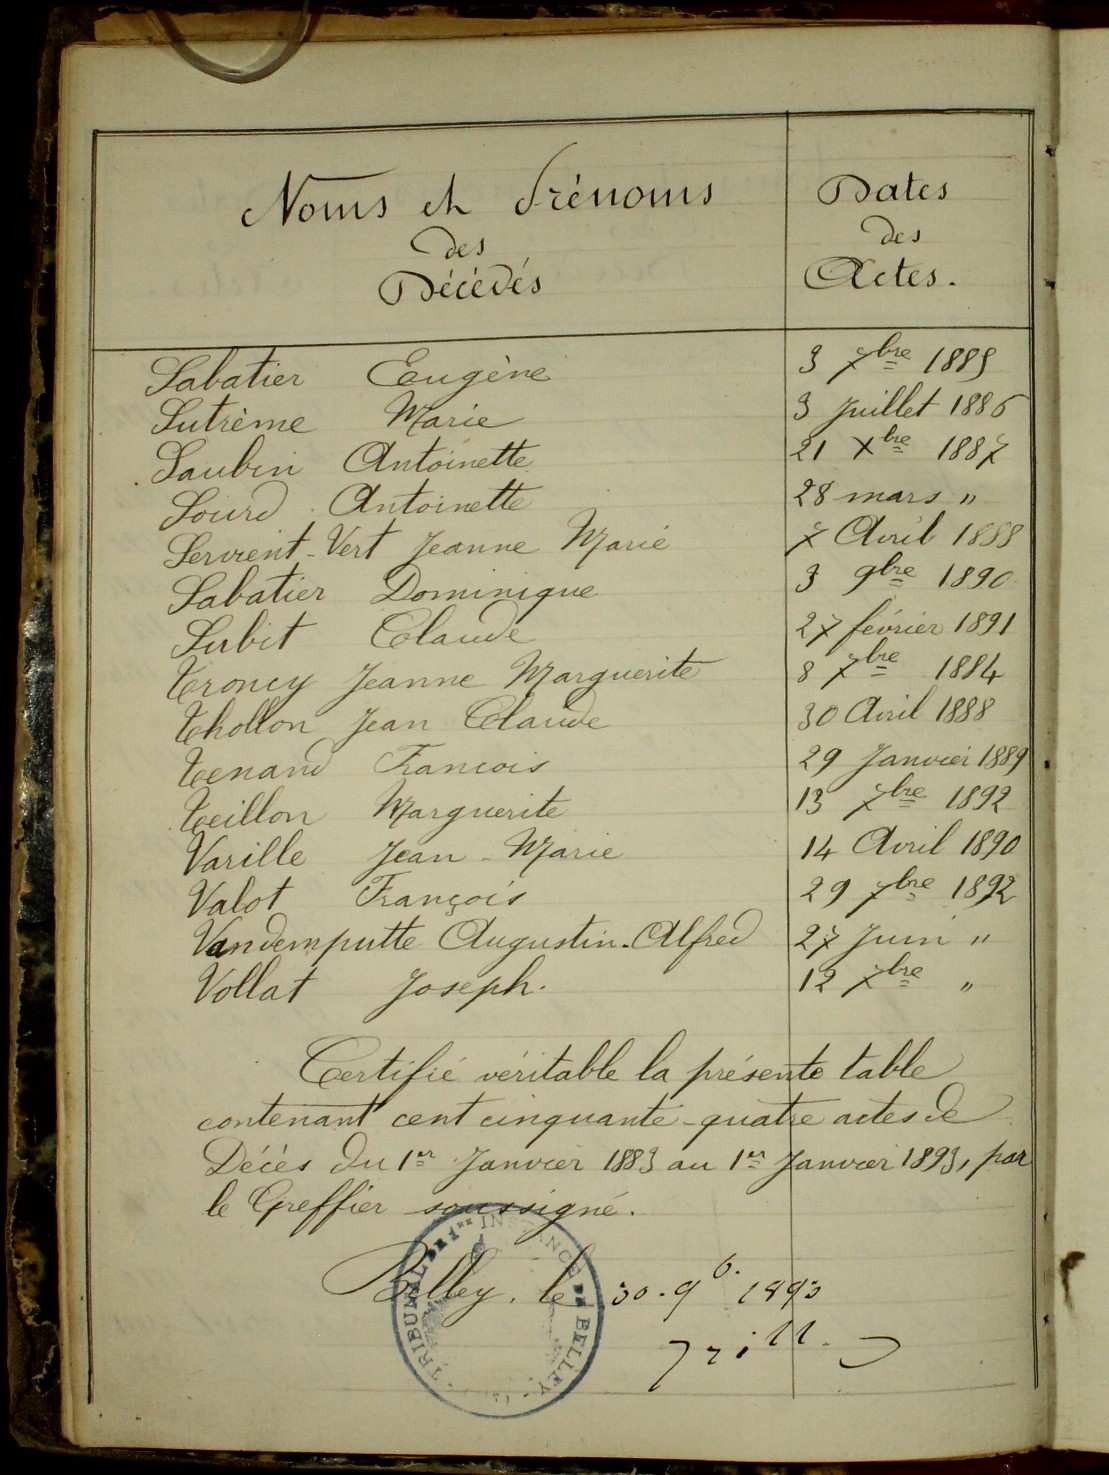 Noms et Prénoms
des
Décédés
Dates
des
Actes.
Sabatier Eugène 3 7bre 1885
Sutrème Marie 3 Juillet 1886
Saubin Antoinette 21 Xbre 1887
Sourd Antoinette 28 mars "
Servient-Vert Jeanne Marie 7 Avril 1888
Sabatier Dominique 3 9bre 1890
Subit Claude 27 février 1891
Troncy Jeanne Marguerite 8 7bre 1884
Thollon Jean Claude 30 Avril 1888
Tenand Francois 29 Janvier 1889
Teillon Marguerite 13 7bre 1892
Varille Jean-Marie 14 Avril 1890
Valot François 29 7bre 1892
Vandemputte Augustin-Alfred 27 Juin "
Vollat Joseph. 12 7bre "
Certifié véritable la présente table
contenant cent cinquante-quatre actes de
Décès du 1er Janvier 1883 au 1er Janvier 1893, par
le Greffier soussigné.
Belley, le 30. 9b. 1893
TRIBUNAL DE 1ère INSTANCE DE BELLEY